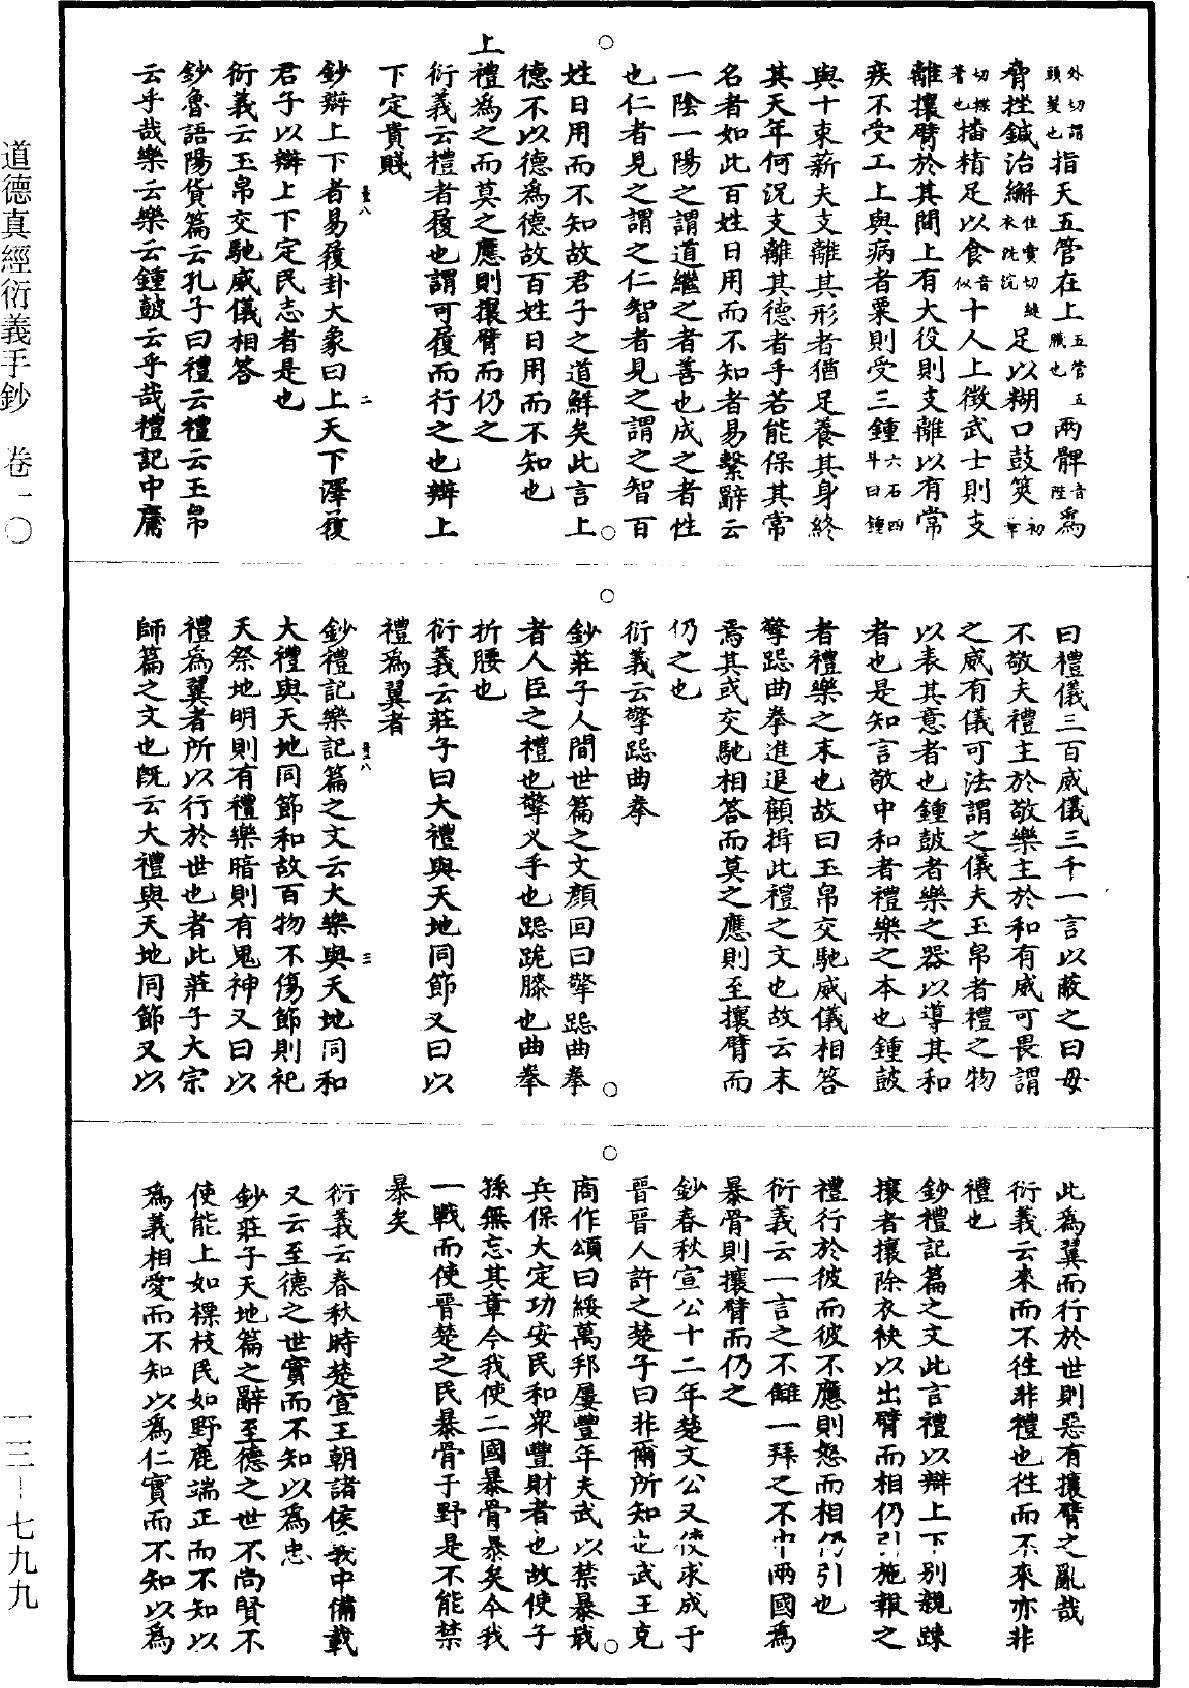 道德真經衍義手鈔 卷一〇
一三—七九九
外切謂頭髮也指天五管在上五管五臟也兩髀音陛爲
脅挫鍼治繲佳賣切縫衣浣浣足以糊口鼓筴初革
切揲蓍也播精足以食音似十人上徵武士則支
離攘臂於其間上有大役則支離以有常
疾不受工上與病者粟則受三鍾六石四斗曰鍾
與十束薪夫支離其形者猶足養其身終
其天年何況支離其德者乎若能保其常
名者如此百姓日用而不知者易繫辭云
一陰一陽之謂道繼之者善也成之者性
也仁者見之謂之仁智者見之謂之智百
姓日用而不知故君子之道鮮矣此言上
德不以德爲德故百姓日用而不知也
上禮爲之而莫之應則攘臂而仍之
衍義云禮者履也謂可履而行之也辯上
下定貴賤
鈔辯上下者易履卦大象曰上天下澤履
君子以辯上下定民志者是也
衍義云玉帛交馳威儀相答
鈔魯語陽貨篇云孔子曰禮云禮云玉帛
云乎哉樂云樂云鍾鼓云乎哉禮記中庸
曰禮儀三百威儀三千一言以蔽之曰毋
不敬夫禮主於敬樂主於和有威可畏謂
之威有儀可法謂之儀夫玉帛者禮之物
以表其意者也鍾鼓者樂之器以導其和
者也是知言敬中和者禮樂之本也鍾鼓
者禮樂之末也故曰玉帛交馳威儀相答
擎跽曲拳進退顧揖此禮之文也故云末
焉其或交馳相答而莫之應則至攘臂而
仍之也
衍義云擎跽曲拳
鈔莊子人間世篇之文顏回曰擎跽曲拳
者人臣之禮也擎义手也跽跪膝也曲拳
折腰也
衍義云莊子曰大禮與天地同節又曰以
禮爲翼者
鈔禮記樂記篇之文云大樂與天地同和
大禮與天地同節和故百物不傷節則祀
天祭地明則有禮樂暗則有鬼神又曰以
禮爲翼者所以行於世也者此莊子大宗
師篇之文也旣云大禮與天地同節又以
此爲翼而行於世則惡有攘臂之亂哉
衍義云來而不往非禮也往而不來亦非
禮也
鈔禮記篇之文此言禮以辯上下別親踈
攘者攘除衣袂以出臂而相仍引施報之
禮行於彼而彼不應則怒而相仍引也
衍義云一言之不讎一拜之不中兩國爲
暴骨則攘臂而仍之
鈔春秋宣公十二年楚文公又使求成于
晉晉人許之楚子曰非爾所知也武王克
商作頌曰綏萬邦屢豐年夫武以禁暴戢
兵保大定功安民和衆豐財者也故使子
孫無忘其章今我使二國暴骨暴矣今我
一戰而使晉楚之民暴骨于野是不能禁
暴矣
衍義云春秋時楚宣王朝諸侯𢧵中備載
又云至德之世實而不知以爲忠
鈔莊子天地篇之辭至德之世不尚賢不
使能上如標枝民如野鹿端正而不知以
爲義相愛而不知以爲仁實而不知以爲